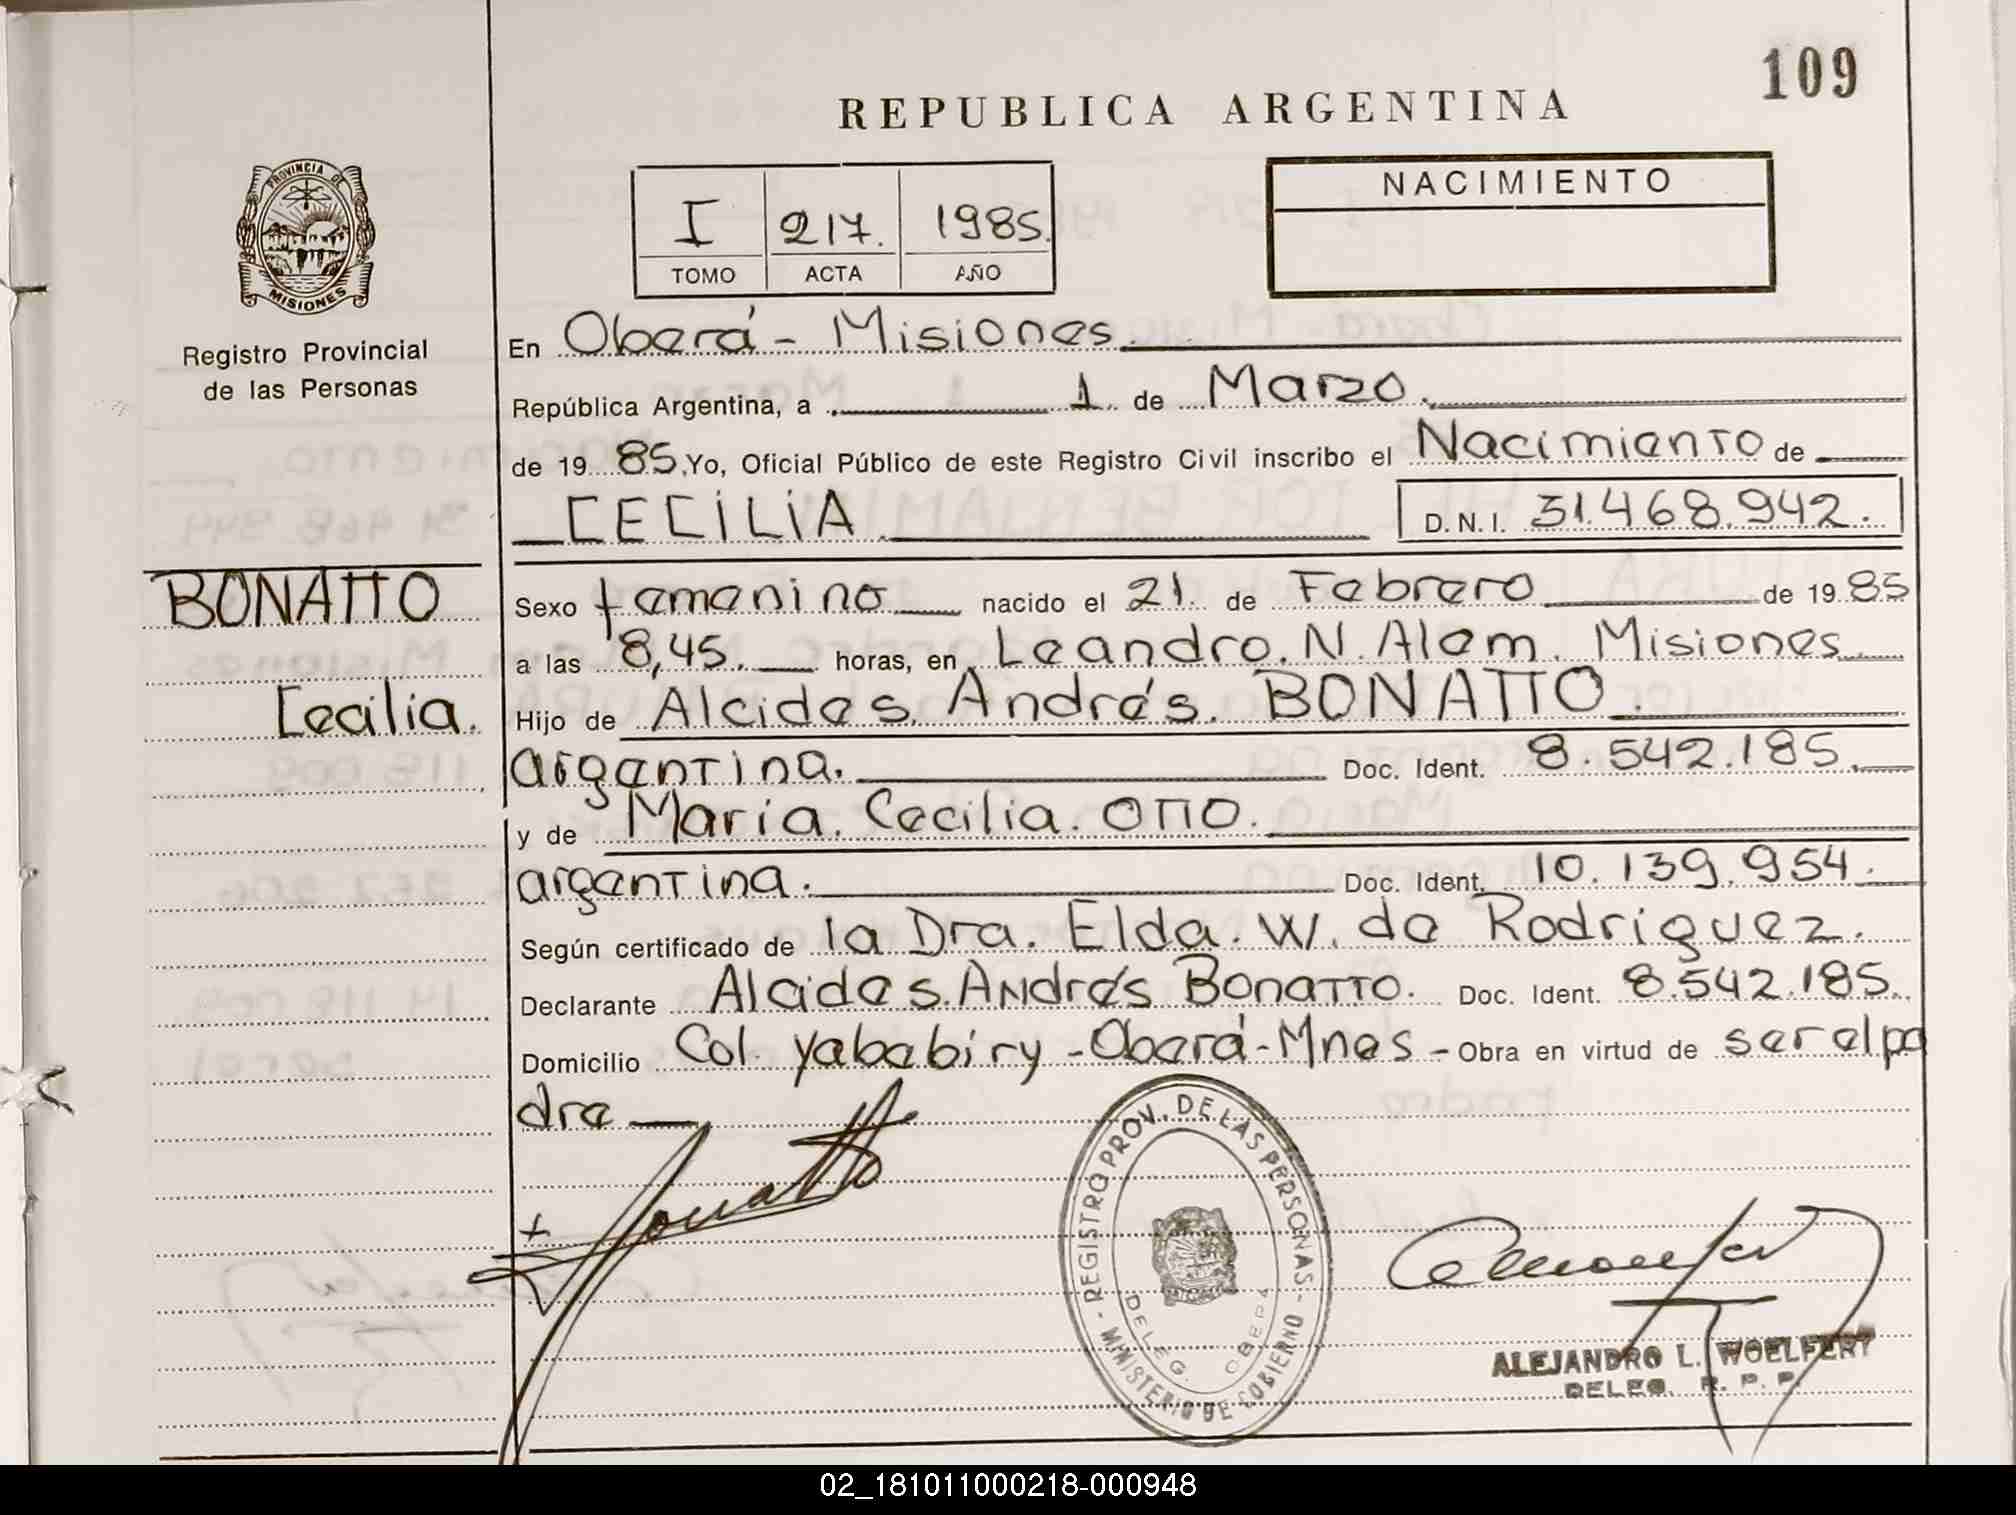 109
REPUBLICA ARGENTINA
PROVINCIA DE
MISIONES
Registro Provincial
de las Personas
I 217. 1985.
TOMO ACTA AÑO
NACIMIENTO
En Oberá - Misiones.
República Argentina, a 1 de Marzo.
de 19 85. Yo, Oficial Público de este Registro Civil inscribo el Nacimiento de
CECILIA D. N. I. 31.468.942.
BONATTO
Cecilia.
Sexo femenino nacido el 21. de Febrero de 19 85
a las 8,45. horas, en Leandro. N. Alem. Misiones
Hijo de Alcides. Andrés. BONATTO.
argentina. Doc. Ident. 8.542.185.
y de María. Cecilia. OTTO.
argentina. Doc. Ident. 10.139.954.
Según certificado de la Dra. Elda. W. de Rodriguez.
Declarante Alcides. Andrés Bonatto. Doc. Ident. 8.542.185.
Domicilio Col. Yabebiry - Oberá - Mnes - Obra en virtud de ser el pa
dre
Bonatto
- REGISTRO PROV. DE LAS PERSONAS -
MINISTERIO DE GOBIERNO
DELEG. OBERA
ALEJANDRO L. WOELFERT
DELEG. R. P. P.
02_181011000218-000948